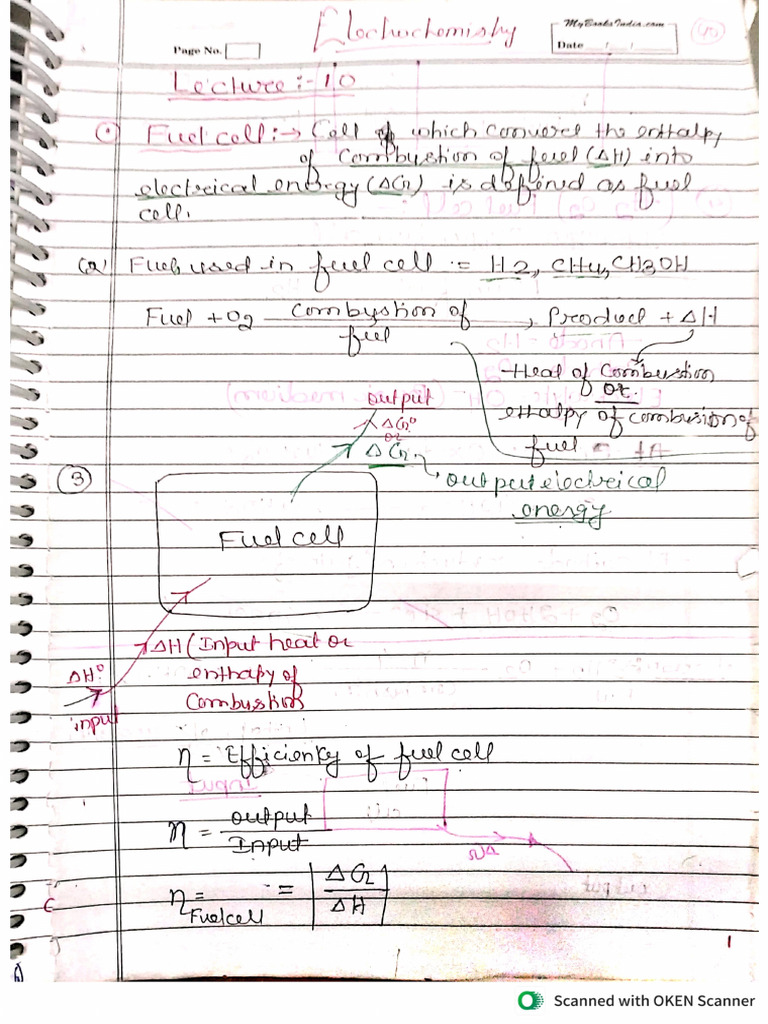 Electrochemistry
MyBooksIndia.com
Page No.
Date / /
Lecture :- 10
Fuel cell :→ Cell of which convert the enthalpy
of Combustion of fuel (ΔH) into
electrical energy (ΔG) is defined as fuel
cell.
(2) Fuels used in fuel cell := H2, CH4, CH3OH
Fuel + O2 Combustion of fuel → Product + ΔH
Heat of Combustion
or
enthalpy of combustion of
fuel
output
ΔG°
or
ΔG → output electrical
energy
(3)
Fuel cell
ΔH (Input heat or
enthapy of
Combustion
ΔH°
input
η = Efficienky of fuel cell
η = output / Input
η Fuelcell = | ΔG / ΔH |
1
Scanned with OKEN Scanner